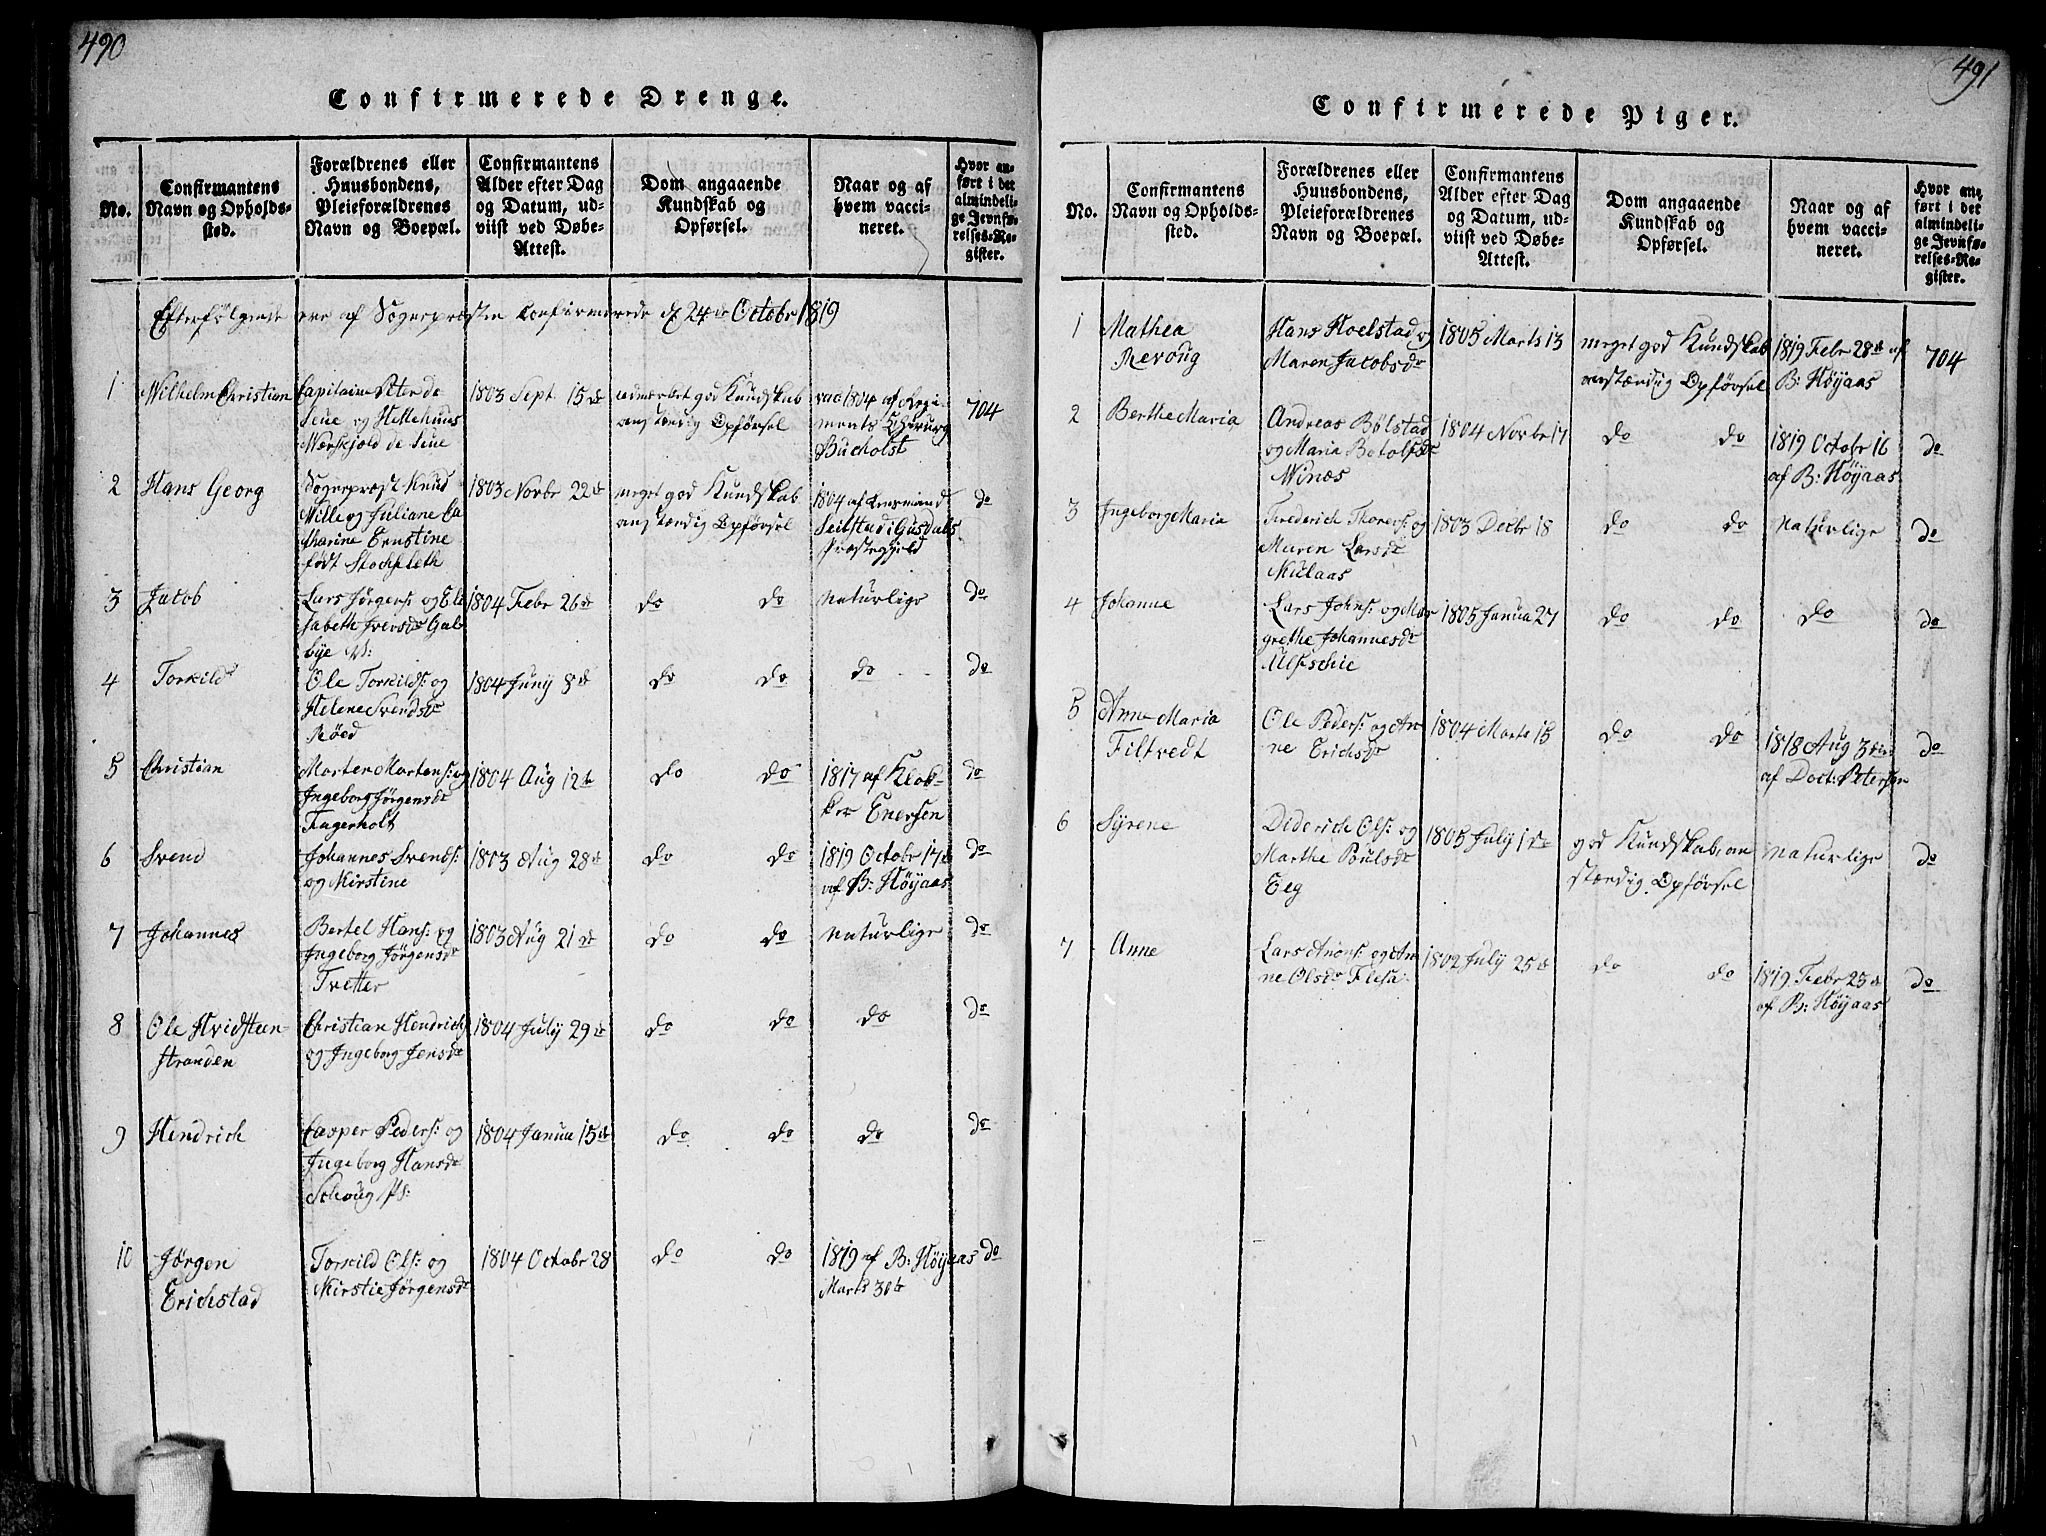 490
Confirmerede Drenge.
No.
Confirmantens
Navn og Opholds-
sted.
Forældrenes eller
Huusbondens,
Pleieforældrenes
Navn og Boepæl.
Confirmantens
Alder efter Dag
og Datum, ud-
viist ved Døbe-
Attest.
Dom angaaende
Kundskab og
Opførsel.
Naar og af
hvem vacci-
neret.
Hvor an-
ført i det
almindeli-
ge Jevnfø-
relses-Re-
gister.
Efterfølgende ere af Sognepræsten Confirmerede d 24de Octobr 1819
1
Wilhelm Christian
Capitaine Peter de
Seue og
Werkjold de Seue
1803 Sept. 15de
udmærket god Kundskab
anstændig Opførsel
1804 af Regi-
ments Chirurg
Bucholst
704
2
Hans Georg
Sognepræst Knud
Wille og Juliane Ca
tharine Ernstine
født Stockfleth
1803 Novbr 22de
meget god Kundskab
anstændig Opførsel
1804 af Lensmand
Seilstad i Gusdals
Præstegjeld
do
3
Jacob
Lars Jørgens: og Eli
sabeth Iversdr Gal
bye
1804 Febr 26de
do do
naturlige
do
4
Torkild
Ole Torkilds: og
Helene Svendsdr
Røed
1804 Juny 8de
do do
do
do
5
Christian
Morten Mortens: og
Ingeborg Jørgensdr
Fagerholt
1804 Aug 12te
do do
1817 af Klok-
ker Enersen
do
6
Svend
Johannes Svends:
og Kirstine
1803 Aug 28de
do do
1819 Octobr 17de
af B: Høyaas
do
7
Johannes
Bertel Hans: og
Ingeborg Jørgensdr
Tvetter
1803 Aug 21de
do do
naturlige
do
8
Ole Hvidsteen-
stranden
Christian Hendrichs
og Ingeborg Jensdr
1804 July 29de
do do
do
do
9
Hendrich
Casper Peders: og
Ingeborg Hansdr
Schoug Ps:
1804 Janua 15de
do do
do
do
10
Jørgen
Erichstad
Torkild Ols: og
Kirstie Jørgensdr
1804 Octobr 28
do do
1819 af B: Høyaas
Marts 30te
do
491
Confirmerede Piger.
No.
Confirmantens
Navn og Opholds-
sted.
Forældrenes eller
Huusbondens,
Pleieforældrenes
Navn og Boepæl.
Confirmantens
Alder efter Dag
og Datum, ud-
viist ved Døbe-
Attest.
Dom angaaende
Kundskab og
Opførsel.
Naar og af
hvem vacci-
neret.
Hvor an-
ført i det
almindeli-
ge Jevnfø-
relses-Re-
gister.
1
Mathea
Revoug
Hans Hoelstad og
Maren Jacobsdr
1805 Marts 13
meget god Kundskab
anstændig Opførsel
1819 Febr 28de af
B: Høyaas
704
2
Berthe Maria
Andreas Bølstad
og Maria Botolfsdr
Winæs
1804 Novbr 17
do do
1819 Octobr 16
af B: Høyaas
do
3
Ingeborg Maria
Frederich Thorers: og
Maren Larsdr
1803 Decbr 18
do do
naturlige
do
4
Johanne
Lars Johns: og Mar
grethe Johannesdr
1805 Janua 27
do do
do
do
5
Anne Maria
Filtvedt
Ole Peders: og An
ne Erichsdr
1804 Marts 15
do do
1818 Aug 3die
af Doct: Petersen
do
6
Syrene
Diderich Ols: og
Marthe Poulsdr
Eeg
1805 July 1ste
god Kundskab, an
stændig Opførsel
naturlige
do
7
Anne
Lars Arons: og An
ne Olsdr Flesk
1802 July 25de
do do
1819 Febr 25de
af B: Høyaas
do